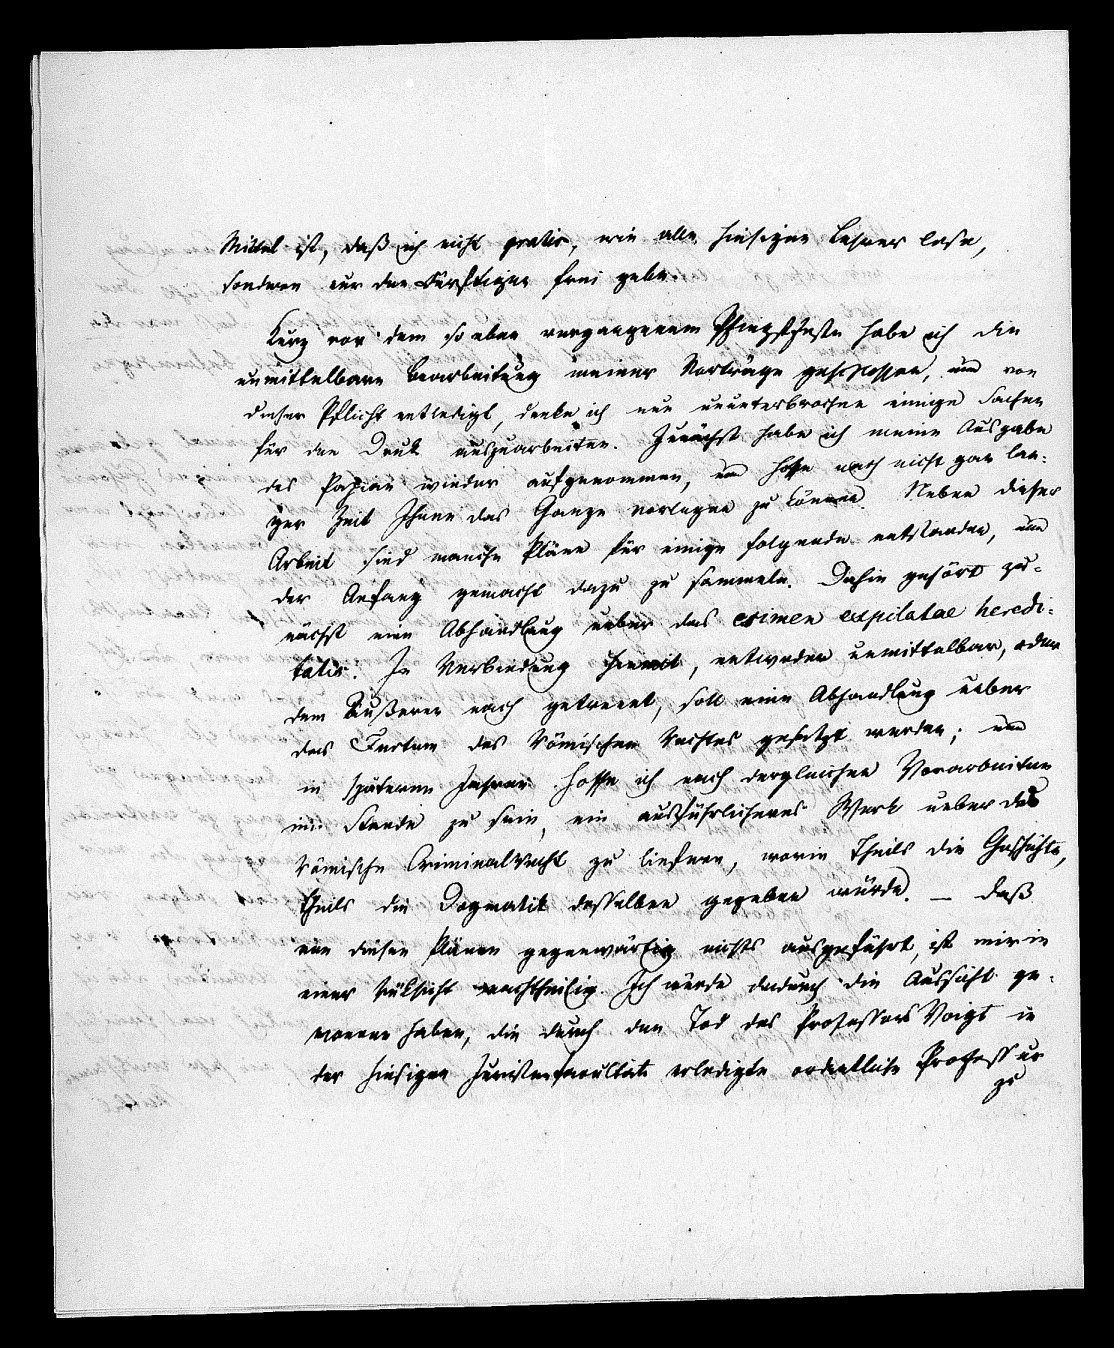 Mittel ist, daß ich nicht gratis, wie alle hiesigen Lehrer lese,
sondern nur den Dürftigen frei gebe.
Kurz vor dem so eben vergangenen Pfingstfeste habe ich die
unmittelbare Bearbeitung meiner Vorträge geschlossen, und von
dieser Pflicht entledigt, denke ich nun ununterbrochen einige Sachen
für den Druk auszuarbeiten. Zunächst habe ich meine Ausgabe
des Papian wieder aufgenommen, und hoffe nach nicht gar lan-
ger Zeit Ihnen das Ganze vorlegen zu können. Neben dieser
Arbeit sind manche Pläne für einige folgende entstanden, und
der Anfang gemacht dazu zu sammeln. Dahin gehört zu-
nächst eine Abhandlung ueber das crimen expilatae heredi-
tatis. In Verbindung hiemit, entweder unmittelbar, oder
dem Äußeren nach getrennt, soll eine Abhandlung ueber
das Furtum des Römischen Rechtes gesetzt werden; und
in späteren Jahren hoffe ich nach dergleichen Vorarbeiten
im Stande zu sein, ein ausführlicheres Werk ueber das
Römische Criminalrecht zu liefern, worin theils die Geschichte,
theils die Dogmatik desselben gegeben würde. — Daß
von diesen Plänen gegenwärtig nichts ausgeführt, ist mir in
einer Rüksicht nachtheilig. Ich würde dadurch die Aussicht ge-
wonnen haben, die durch den Tod des Professors Voigt in
der hiesigen Juristenfacultät erledigte ordentliche Professur
zu